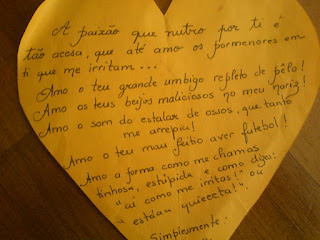 A paixão que nutro por ti é
tão acesa, que até amo os pormenores em
ti que me irritam...
Amo o teu grande umbigo repleto de pêlo!
Amo os teus beijos maliciosos no meu nariz!
Amo o som do estalar de ossos, que tanto
me arrepiu!
Amo o teu mau feitio aver futebol!
Amo a forma como me chamas
tinhosa, estúpida e como digo:
"ui como me irritas!" ou
"estáau quieecta!".
Simplesmente.